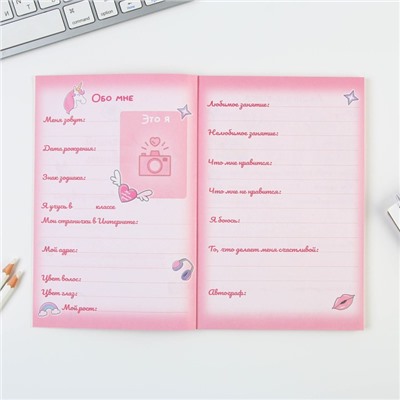 Обо мне
Меня зовут:
Это я
Дата рождения:
Знак зодиака:
Я учусь в классе
Мои странички в Интернете:
Мой адрес:
Цвет волос:
Цвет глаз:
Мой рост:
Любимое занятие:
Нелюбимое занятие:
Что мне нравится:
Что мне не нравится:
Я боюсь:
То, что делает меня счастливой:
Автограф:
⌘
command
option